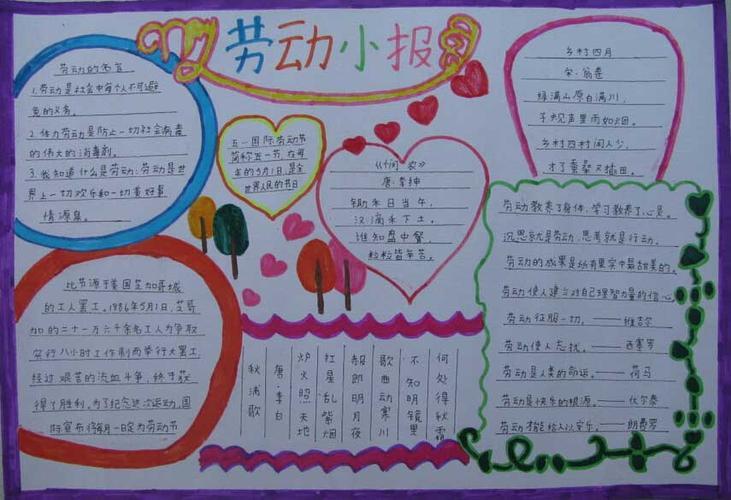 劳动小报
劳动的名言
1.劳动是社会中每个人不可避
免的义务。
2.体力劳动是防止一切社会病毒
的伟大的消毒剂。
3.我知道什么是劳动:劳动是世
界上一切欢乐和一切美好事
情源集。
五一国际劳动节
简称五一节,在每
年的5月1日,是全
世界人民的节日
《悯农》
唐·李绅
锄禾日当午,
汉滴禾下土。
谁知盘中餐,
粒粒皆辛苦。
乡村四月
宋·翁卷
绿满山原白满川,
子规声里雨如烟。
乡村四月闲人少,
才了蚕桑又插田。
此节源于美国芝加哥城
的工人罢工。1986年5月1日,芝哥
加的二十一万六千余名工人为争取
实行八小时工作制而举行大罢工
经过艰苦的流血斗争,终于获
得了胜利。为了纪念这次运动,国
际宣布将每月一日定为劳动节
秋浦歌
唐·李白
炉火照天地
红星乱紫烟
赧郎明月夜
歌曲动寒川
不知明镜里
何处得秋霜
劳动教养了身体,学习教养了心灵。
沉思就是劳动,思考就是行动。
劳动的成果是所有果实中最甜美的。
劳动使人建立对自己理智力量的信心
劳动征服一切。——维吉尔
劳动使人忘忧。——西塞罗
劳动是人类的命运。——荷马
劳动是快乐的根源。——伏尔泰
劳动才能给人以安乐。——朗费罗